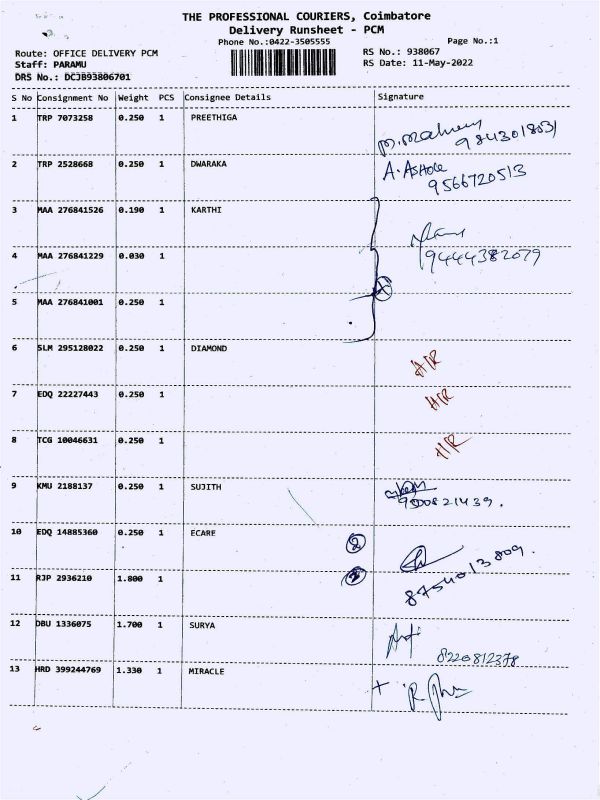 THE PROFESSIONAL COURIERS, Coimbatore
Delivery Runsheet - PCM
Phone No.:0422-3505555
Page No.:1
Route: OFFICE DELIVERY PCM
RS No.: 938067
Staff: PARAMU
RS Date: 11-May-2022
DRS No.: DCJB93806701
S No Consignment No Weight PCS Consignee Details Signature
1 TRP 7073258 0.250 1 PREETHIGA
9843018031
2 TRP 2528668 0.250 1 DWARAKA A. ASHOK
9566720513
3 MAA 276841526 0.190 1 KARTHI
4 MAA 276841229 0.030 1 9444382079
5 MAA 276841001 0.250 1
6 SLM 295128022 0.250 1 DIAMOND H/R
7 EDQ 22227443 0.250 1 H/R
8 TCG 10046631 0.250 1 H/R
9 KMU 2188137 0.250 1 SUJITH
9500821439.
10 EDQ 14885360 0.250 1 ECARE 2
11 RJP 2936210 1.800 1 8754013809.
12 DBU 1336075 1.700 1 SURYA
8220812378
13 HRD 399244769 1.330 1 MIRACLE